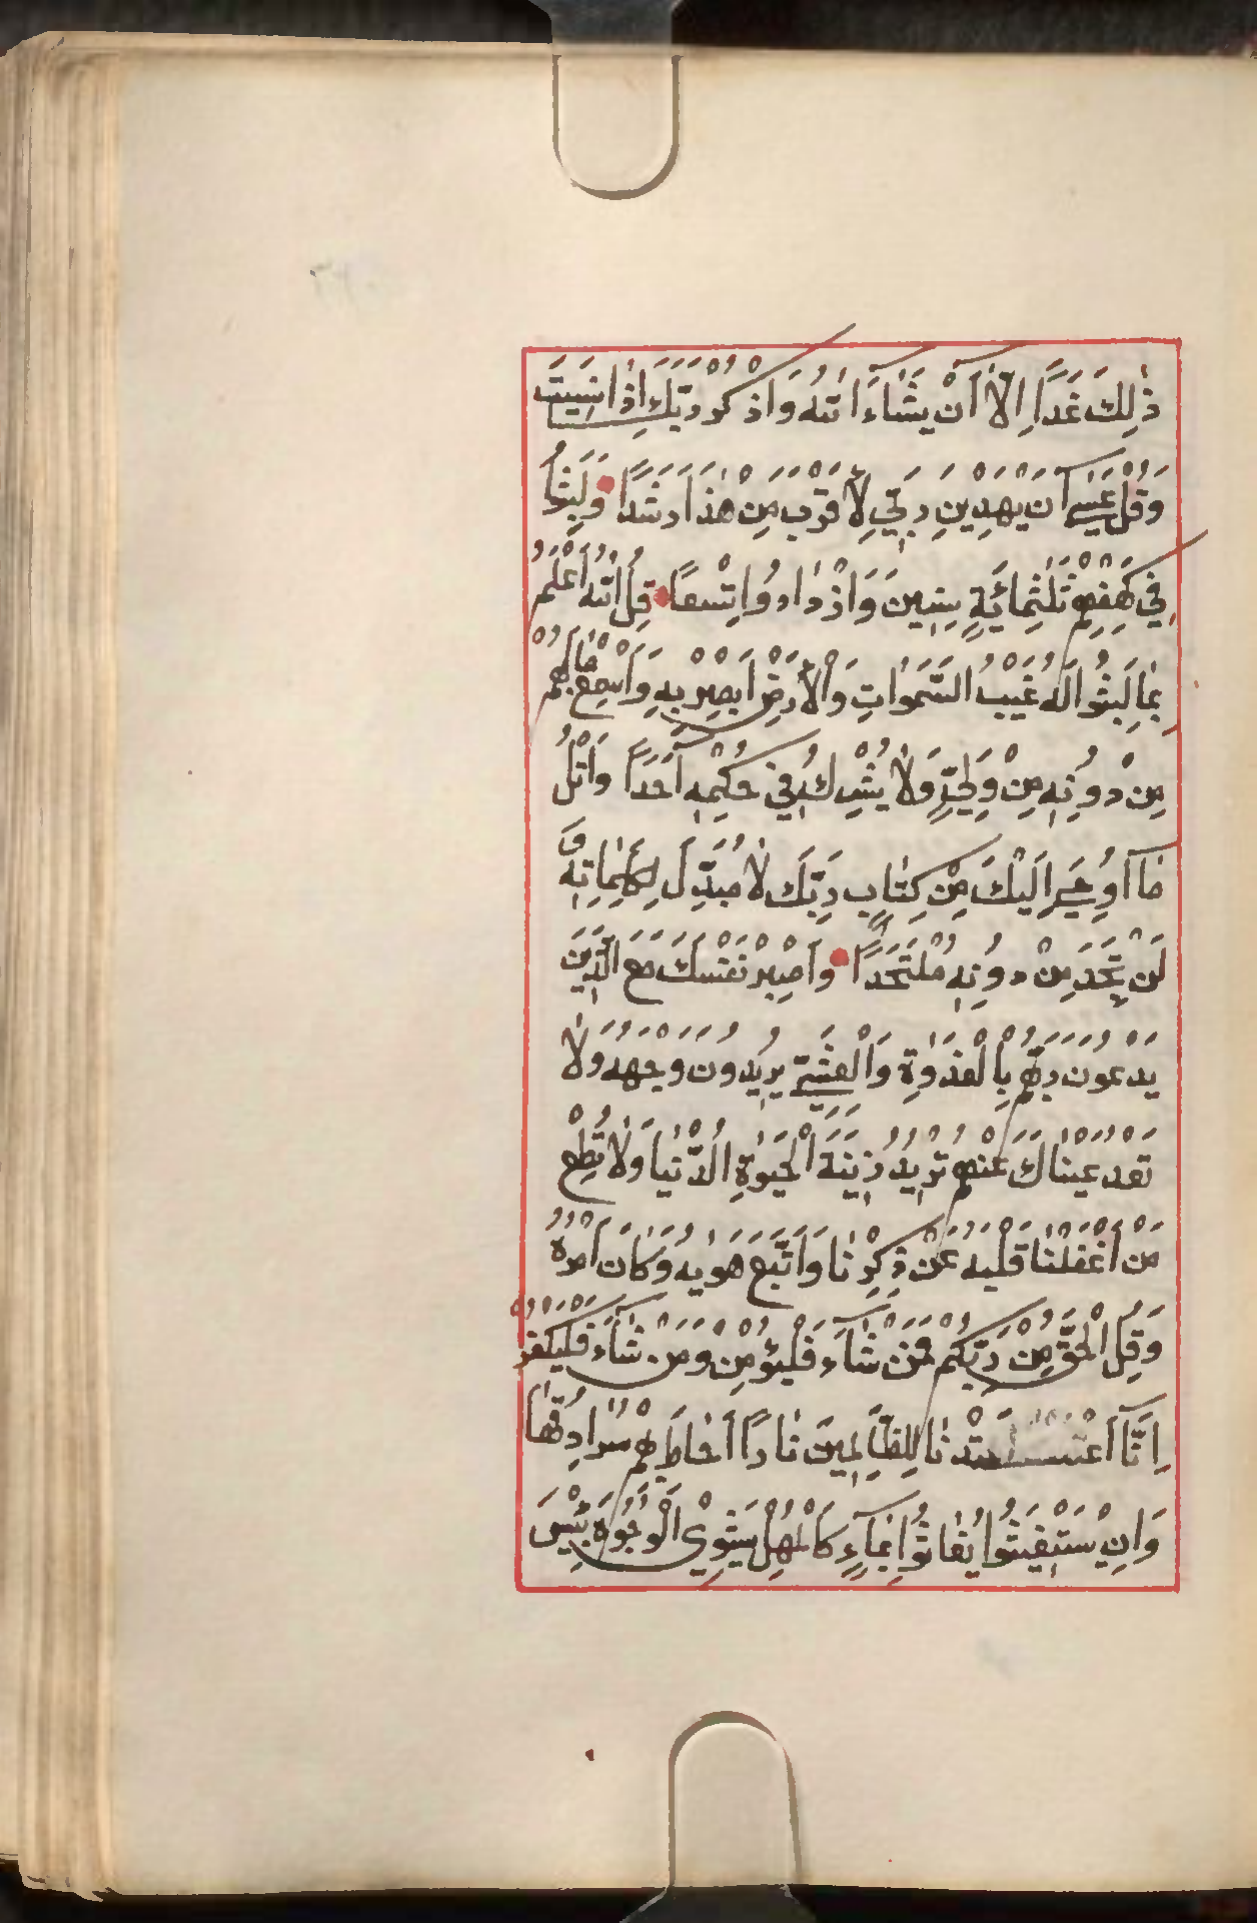 ذٰلِكَ غَدًا اِلَّا اَنْ يَشَاءَ اللّٰهُ وَاذْكُرْ رَبَّكَ اِذَا نَسِيتَ
وَقُلْ عَسٰى اَنْ يَهْدِيَنِ رَبِّى لِاَقْرَبَ مِنْ هٰذَا رَشَدًا وَلَبِثُوا
فِى كَهْفِهِمْ ثَلٰثَمِائَةٍ سِنِينَ وَازْدَادُوا تِسْعًا قُلِ اللّٰهُ اَعْلَمُ
بِمَا لَبِثُوا لَهُ غَيْبُ السَّمٰوَاتِ وَالْاَرْضِ اَبْصِرْ بِهِ وَاَسْمِعْ مَا لَهُمْ
مِنْ دُونِهِ مِنْ وَلِىٍّ وَلَا يُشْرِكُ فِى حُكْمِهِ اَحَدًا وَاتْلُ
مَا اُوحِىَ اِلَيْكَ مِنْ كِتَابِ رَبِّكَ لَا مُبَدِّلَ لِكَلِمَاتِهِ وَ
لَنْ تَجِدَ مِنْ دُونِهِ مُلْتَحَدًا وَاصْبِرْ نَفْسَكَ مَعَ الَّذِينَ
يَدْعُونَ رَبَّهُمْ بِالْغَدٰوةِ وَالْعَشِىِّ يُرِيدُونَ وَجْهَهُ وَلَا
تَعْدُ عَيْنَاكَ عَنْهُمْ تُرِيدُ زِينَةَ الْحَيٰوةِ الدُّنْيَا وَلَا تُطِعْ
مَنْ اَغْفَلْنَا قَلْبَهُ عَنْ ذِكْرِنَا وَاتَّبَعَ هَوٰيهُ وَكَانَ اَمْرُهُ
وَقُلِ الْحَقُّ مِنْ رَبِّكُمْ فَمَنْ شَاءَ فَلْيُؤْمِنْ وَمَنْ شَاءَ فَلْيَكْفُرْ
اِنَّا اَعْتَدْنَا لِلظَّالِمِينَ نَارًا اَحَاطَ بِهِمْ سُرَادِقُهَا
وَاِنْ يَسْتَغِيثُوا يُغَاثُوا بِمَاءٍ كَالْمُهْلِ يَشْوِى الْوُجُوهَ بِئْسَ